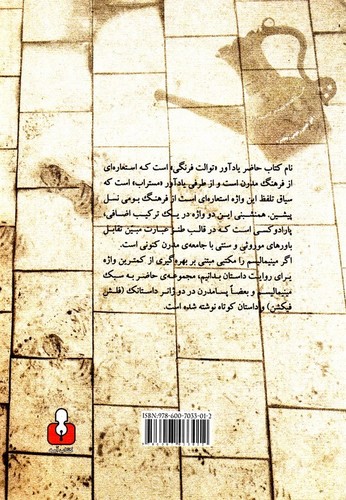 نام کتاب حاضر یادآور «توالت فرنگی» است که استعاره‌ای
از فرهنگ مدرن است و از طرفی یادآور «مستراب» است که
سیاق تلفظ این واژه استعاره‌ای است از فرهنگ بومی نسل
پیشین. همنشینی این دو واژه در یک ترکیب اضافی،
پارادوکسی است که در قالب طنز عبارت مبیّن تقابل
باورهای موروثی و سنتی با جامعه‌ی مدرن کنونی است.
اگر مینیمالیسم را مکتبی مبتنی بر بهره‌گیری از کمترین واژه
برای روایت داستان بدانیم، مجموعه‌ی حاضر به سبک
مینیمالیسم و بعضاً پسامدرن در دو ژانر داستانک (فلش
فیکشن) و داستان کوتاه نوشته شده است.
ISBN:978-600-7033-01-2